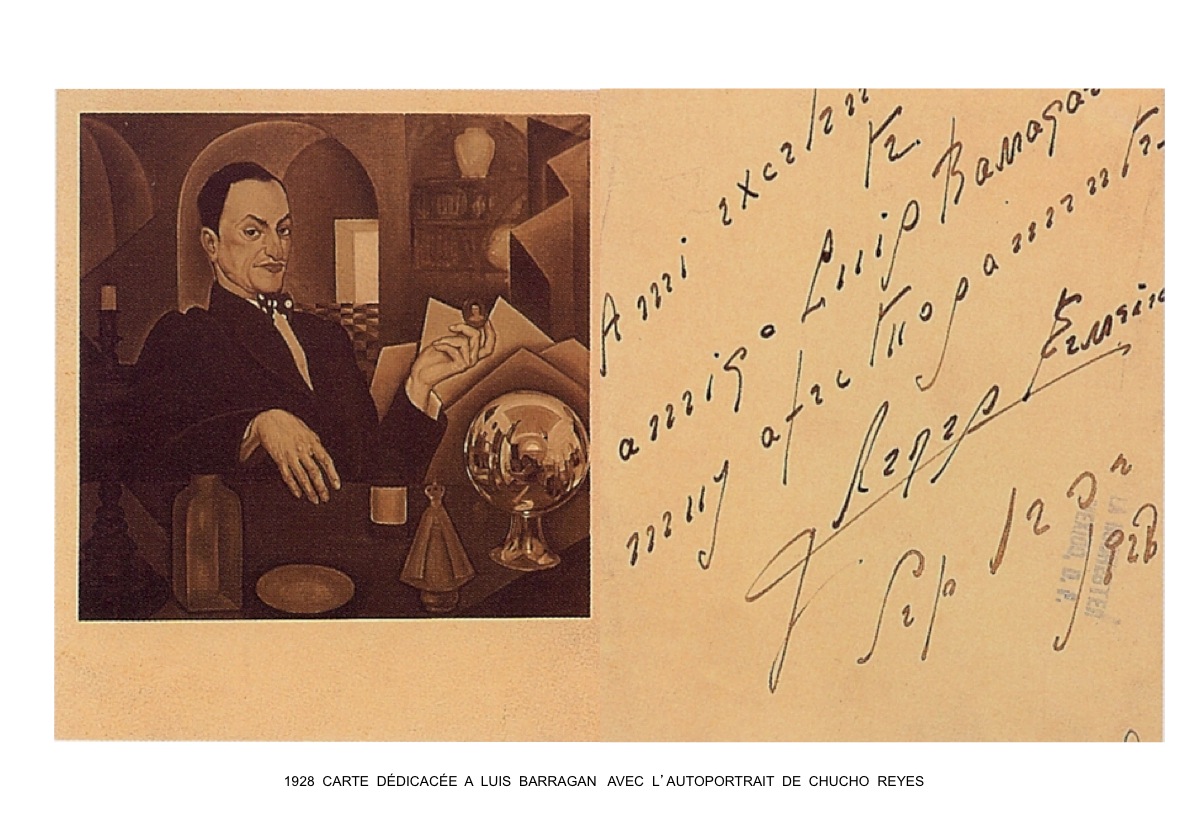 A mi excelen
te
amigo Luis Barragan
muy afectuosamente
Reyes Ferreira
Sep
MEXICO, D. F.
1928 CARTE DÉDICACÉE A LUIS BARRAGAN AVEC L'AUTOPORTRAIT DE CHUCHO REYES